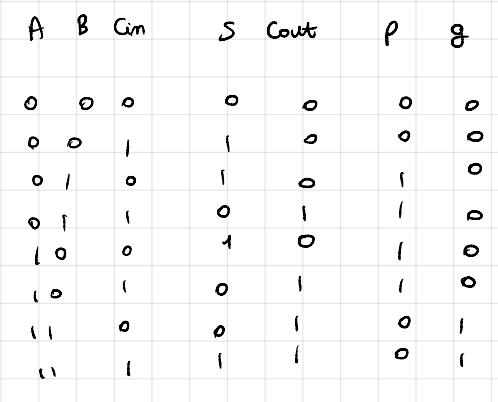 A B Cin S Cout p g
0 0 0 0 0 0 0
0 0 1 1 0 0 0
0 1 0 1 0 1 0
0 1 1 0 1 1 0
1 0 0 1 0 1 0
1 0 1 0 1 1 0
1 1 0 0 1 0 1
1 1 1 1 1 0 1